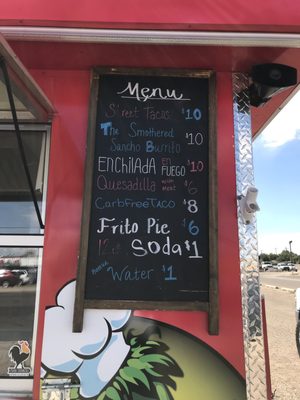 Menu
Street Tacos $10
The Smothered $10
Sancho Burrito
ENCHILADA EN FUEGO $10
Quesadilla with meat $6
CarbFreeTaco $8
Frito Pie $6
12oz Soda $1
Water $1